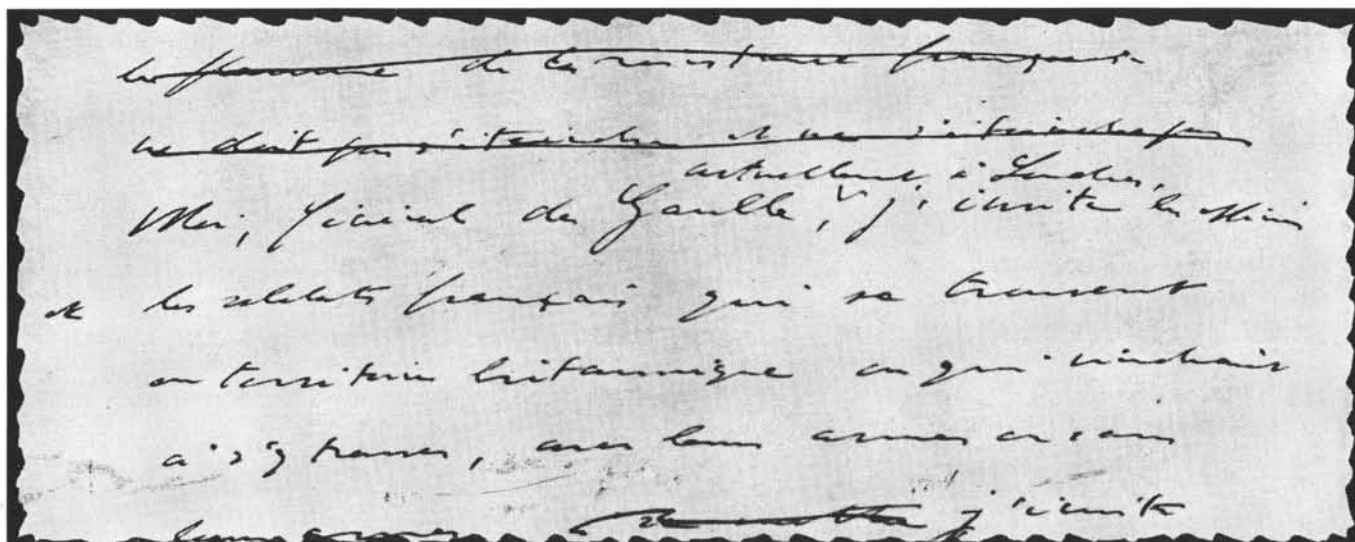 la flamme de la résistance française
ne doit pas s'éteindre et ne s'éteindra pas
actuellement à Londres,
Moi, Général de Gaulle, j'invite les officiers
et les soldats français qui se trouvent
en territoire britannique ou qui viendraient
à s'y trouver, avec leurs armes ou sans
leurs armes j'invite